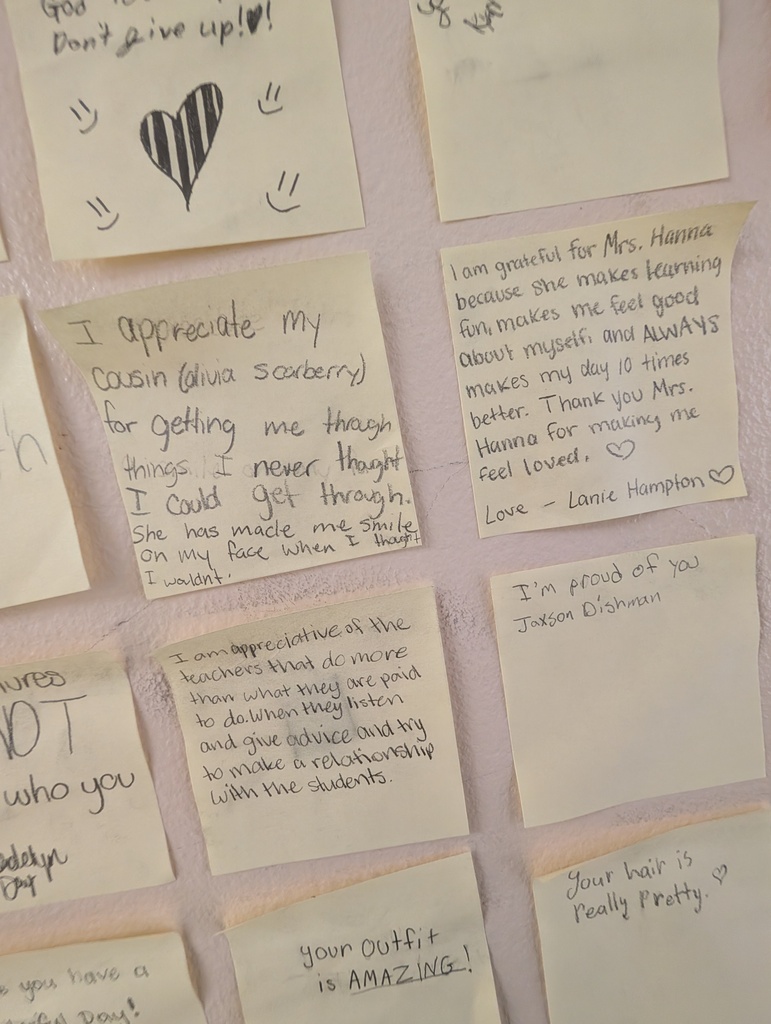 Don't give up!!
I appreciate my
cousin (olivia scarberry)
for getting me though
things I never thaght
I could get through.
She has made me smile
on my face when I thought
I wouldn't.
I am grateful for Mrs. Hanna
because she makes learning
fun, makes me feel good
about myself, and ALWAYS
makes my day 10 times
better. Thank you Mrs.
Hanna for making me
feel loved.
Love - Lanie Hampton
NOT
who you
I am appreciative of the
teachers that do more
than what they are paid
to do. When they listen
and give advice and try
to make a relationship
with the students.
I'm proud of you
Jaxson Dishman
you have a
Day!
your outfit
is AMAZING!
Your hair is
really Pretty.